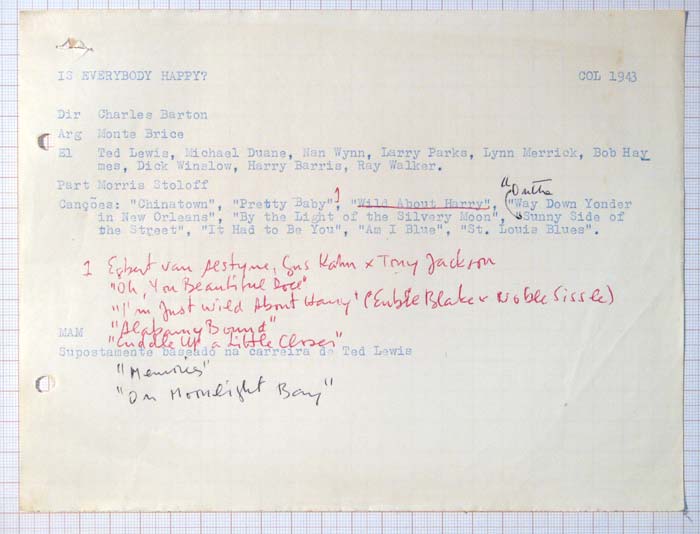 IS EVERYBODY HAPPY? COL 1943
Dir Charles Barton
Arg Monte Brice
El Ted Lewis, Michael Duane, Nan Wynn, Larry Parks, Lynn Merrick, Bob Hay
mes, Dick Winslow, Harry Barris, Ray Walker.
Part Morris Stoloff
1 "On the
Canções: "Chinatown", "Pretty Baby", "Wild About Harry", "Way Down Yonder
in New Orleans", "By the Light of the Silvery Moon", "Sunny Side of
the Street", "It Had to Be You", "Am I Blue", "St. Louis Blues".
1 Egbert van Alstyne, Gus Kahn x Tony Jackson
"Oh, You Beautiful Doll"
"I'm Just Wild About Harry" (Eubie Blake x Noble Sissle)
"Alabamy Bound"
MAM
"Cuddle Up a Little Closer"
Supostamente baseado na carreira de Ted Lewis
"Memories"
"On Moonlight Bay"